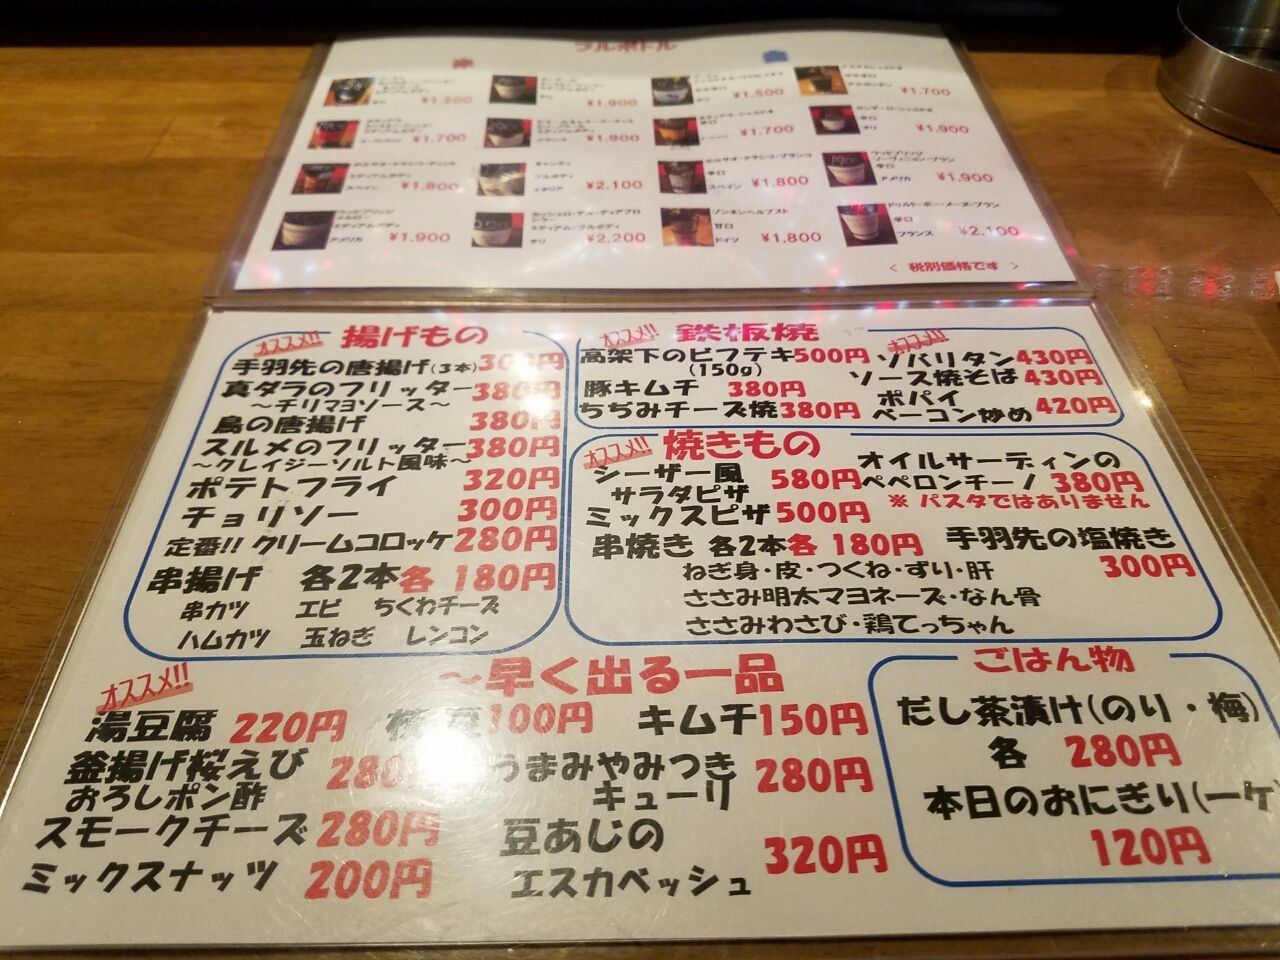 フルボトル
赤
白
チリ
¥1,200
¥1,900
¥1,500
アルゼンチン
¥1,700
¥1,700
フランス
¥1,900
¥1,700
チリ
¥1,900
ミディアムボディ
スペイン ¥1,800
キャンティ
フルボディ
イタリア ¥2,100
ボルサオ・クラシコ・ブランコ
辛口
スペイン ¥1,800
ウッドブリッジ
ソーヴィニヨン・ブラン
辛口
アメリカ ¥1,900
ウッドブリッジ
メルロー
ミディアムボディ
アメリカ ¥1,900
カッシェロ・デル・ディアブロ
シラー
ミディアム・フルボディ
チリ ¥2,200
甘口
ドイツ ¥1,800
辛口
フランス ¥2,100
＜ 税別価格です ＞
オススメ!! 揚げもの
手羽先の唐揚げ(3本) 円
真ダラのフリッター 380円
～チリマヨソース～
鳥の唐揚げ 380円
スルメのフリッター 380円
～クレイジーソルト風味～
ポテトフライ 320円
チョリソー 300円
定番!! クリームコロッケ 280円
串揚げ 各2本 各 180円
串カツ エビ ちくわチーズ
ハムカツ 玉ねぎ レンコン
オススメ!! 鉄板焼 オススメ!!
高架下のビフテキ 500円
(150g)
豚キムチ 380円
ちぢみチーズ焼 380円
ソバリタン 430円
ソース焼そば 430円
ポパイ
ベーコン炒め 420円
オススメ!! 焼きもの
シーザー風
サラダピザ 580円
ミックスピザ 500円
オイルサーディンの
ペペロンチーノ 380円
※ パスタではありません
串焼き 各2本 各 180円
ねぎ身・皮・つくね・ずり・肝
ささみ明太マヨネーズ・なん骨
ささみわさび・鶏てっちゃん
手羽先の塩焼き
300円
オススメ!! ～早く出る一品
湯豆腐 220円
枝豆 100円
キムチ 150円
釜揚げ桜えび
おろしポン酢 280
うまみやみつき
キューリ 280円
スモークチーズ 280円
豆あじの
エスカベッシュ 320円
ミックスナッツ 200円
ごはん物
だし茶漬け(のり・梅)
各 280円
本日のおにぎり(一ケ
120円